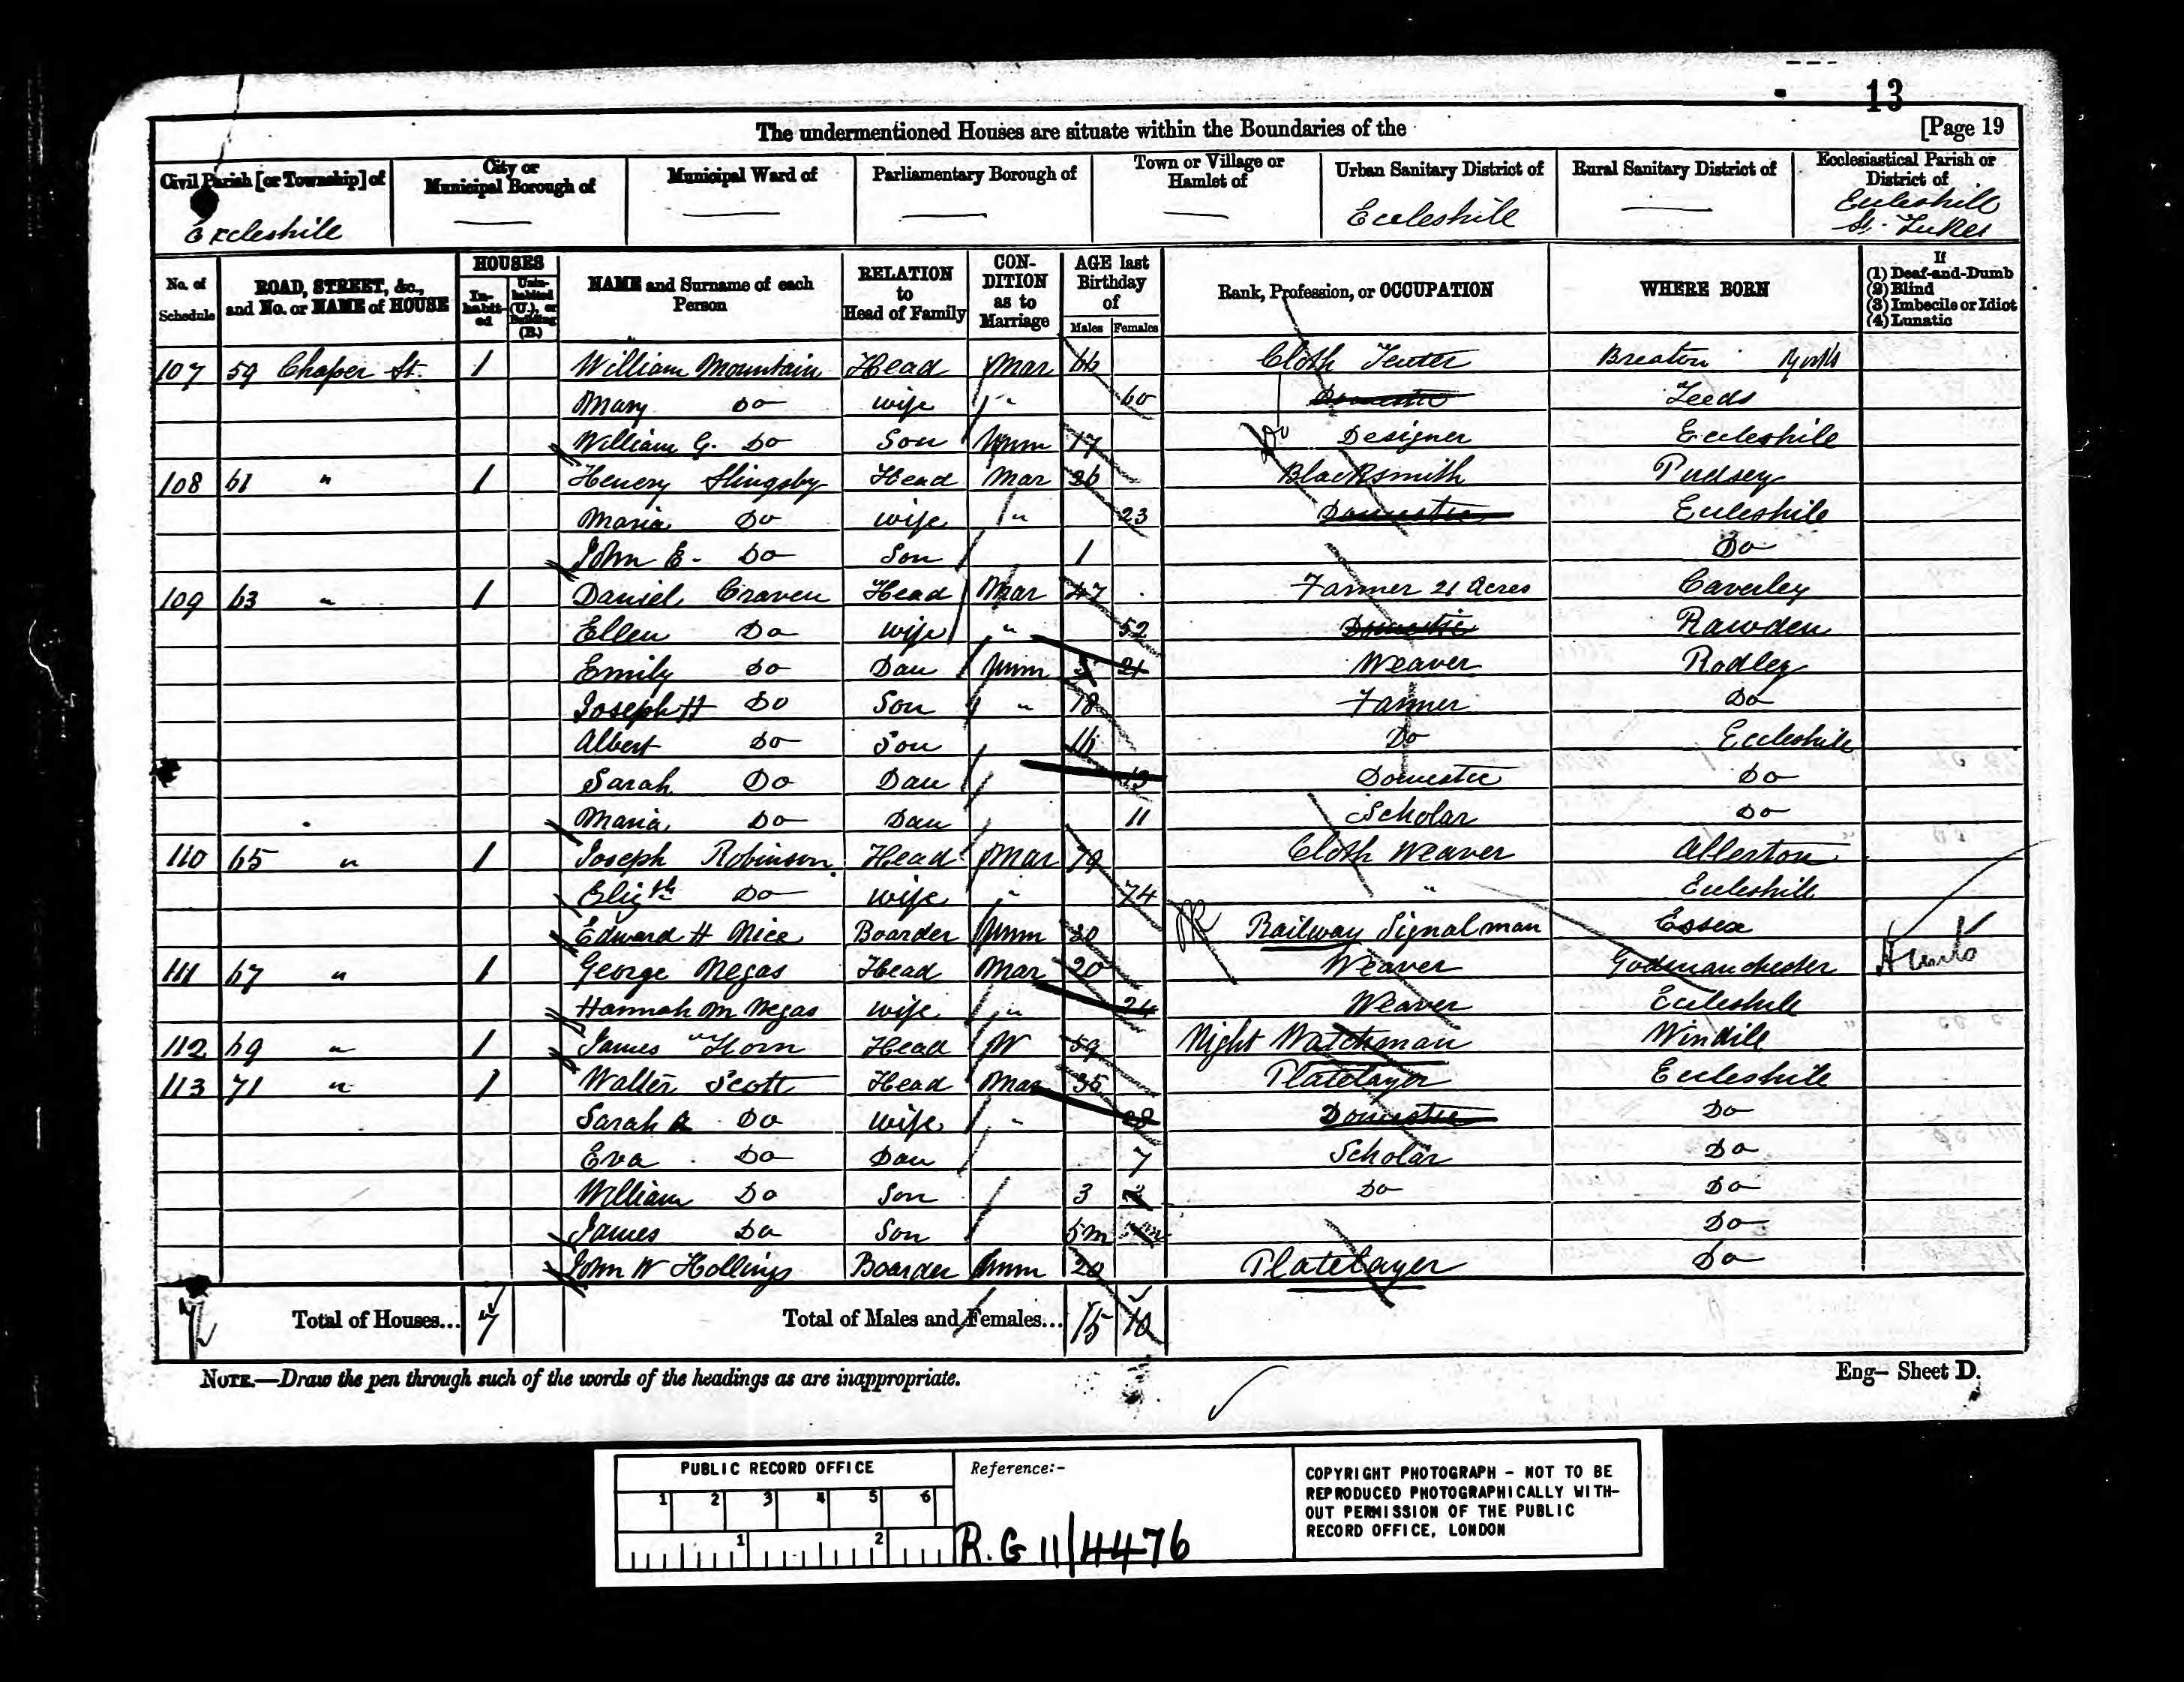 13
The undermentioned Houses are situate within the Boundaries of the [Page 19
Civil Parish [or Township] of City or Municipal Borough of Municipal Ward of Parliamentary Borough of Town or Village or Hamlet of Urban Sanitary District of Rural Sanitary District of Ecclesiastical Parish or District of
Eccleshill — — — — Eccleshill — Eccleshill St. Lukes
No. of Schedule ROAD, STREET, &c., and No. or NAME of HOUSE HOUSES Inhabited Uninhabited (U.), or Building (B.) NAME and Surname of each Person RELATION to Head of Family CONDITION as to Marriage AGE last Birthday of Males Females Rank, Profession, or OCCUPATION WHERE BORN If (1) Deaf-and-Dumb (2) Blind (3) Imbecile or Idiot (4) Lunatic
107 59 Chapel St. 1 William Mountain Head Mar 66 Cloth Tenter Yorks
Mary Do wife " 60 Domestic Leeds
William G. Do Son Unm 17 Do Designer Eccleshill
108 61 " 1 Henery Slingsby Head Mar 26 Blacksmith Pudsey
Maria Do wife " 23 Domestic Eccleshill
John E. Do Son 1 Do
109 63 " 1 Daniel Craven Head Mar 47 Farmer 21 Acres Caverley
Ellen Do wife " 52 Domestic Rawden
Emily Do Dau Unm 21 Weaver Rodley
Joseph H Do Son " 18 Farmer Do
Albert Do Son 16 Do Eccleshill
Sarah Do Dau 13 Domestic Do
Maria Do Dau 11 Scholar Do
110 65 " 1 Joseph Robinson Head Mar 79 Cloth Weaver Allerton
Elizth Do wife " 74 " Eccleshill
Edward H Nice Boarder Unm 30 Railway Signalman Essex
111 67 " 1 George Negas Head Mar 20 Weaver Godmanchester Hunts
Hannah M Negas wife " 24 Weaver Eccleshill
112 69 " 1 James Horn Head W 59 Night Watchman Windill
113 71 " 1 Walter Scott Head Mar 35 Platelayer Eccleshill
Sarah A Do wife " 28 Domestic Do
Eva Do Dau 7 Scholar Do
William Do Son 3 Do Do
James Do Son 5m Do
John W Hollings Boarder Unm 20 Platelayer Do
Total of Houses... 7 Total of Males and Females... 15 10
NOTE.—Draw the pen through such of the words of the headings as are inappropriate. Eng— Sheet D.
PUBLIC RECORD OFFICE
1 2 3 4 5 6
1 2
Reference:-
R.G 11/4476
COPYRIGHT PHOTOGRAPH - NOT TO BE
REPRODUCED PHOTOGRAPHICALLY WITH-
OUT PERMISSION OF THE PUBLIC
RECORD OFFICE, LONDON